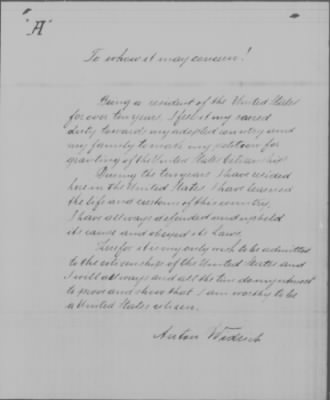 "A"
To whom it may concern!
Being a resident of the United States
for over ten years, I feel it my sacred
duty towards my adopted country and
my family to make my petition for
granting of the United States citizenship.
During the ten years I have resided
here in the United States I have learned
the life and customs of this country,
I have allways defended and upheld
its cause and obeyed its laws.
Therfor it is my only wish to be admitted
to the citizenship of the United States and
I will allways and all the time do my utmost
to prove and show that I am worthy to be
a United States citizen.
Anton